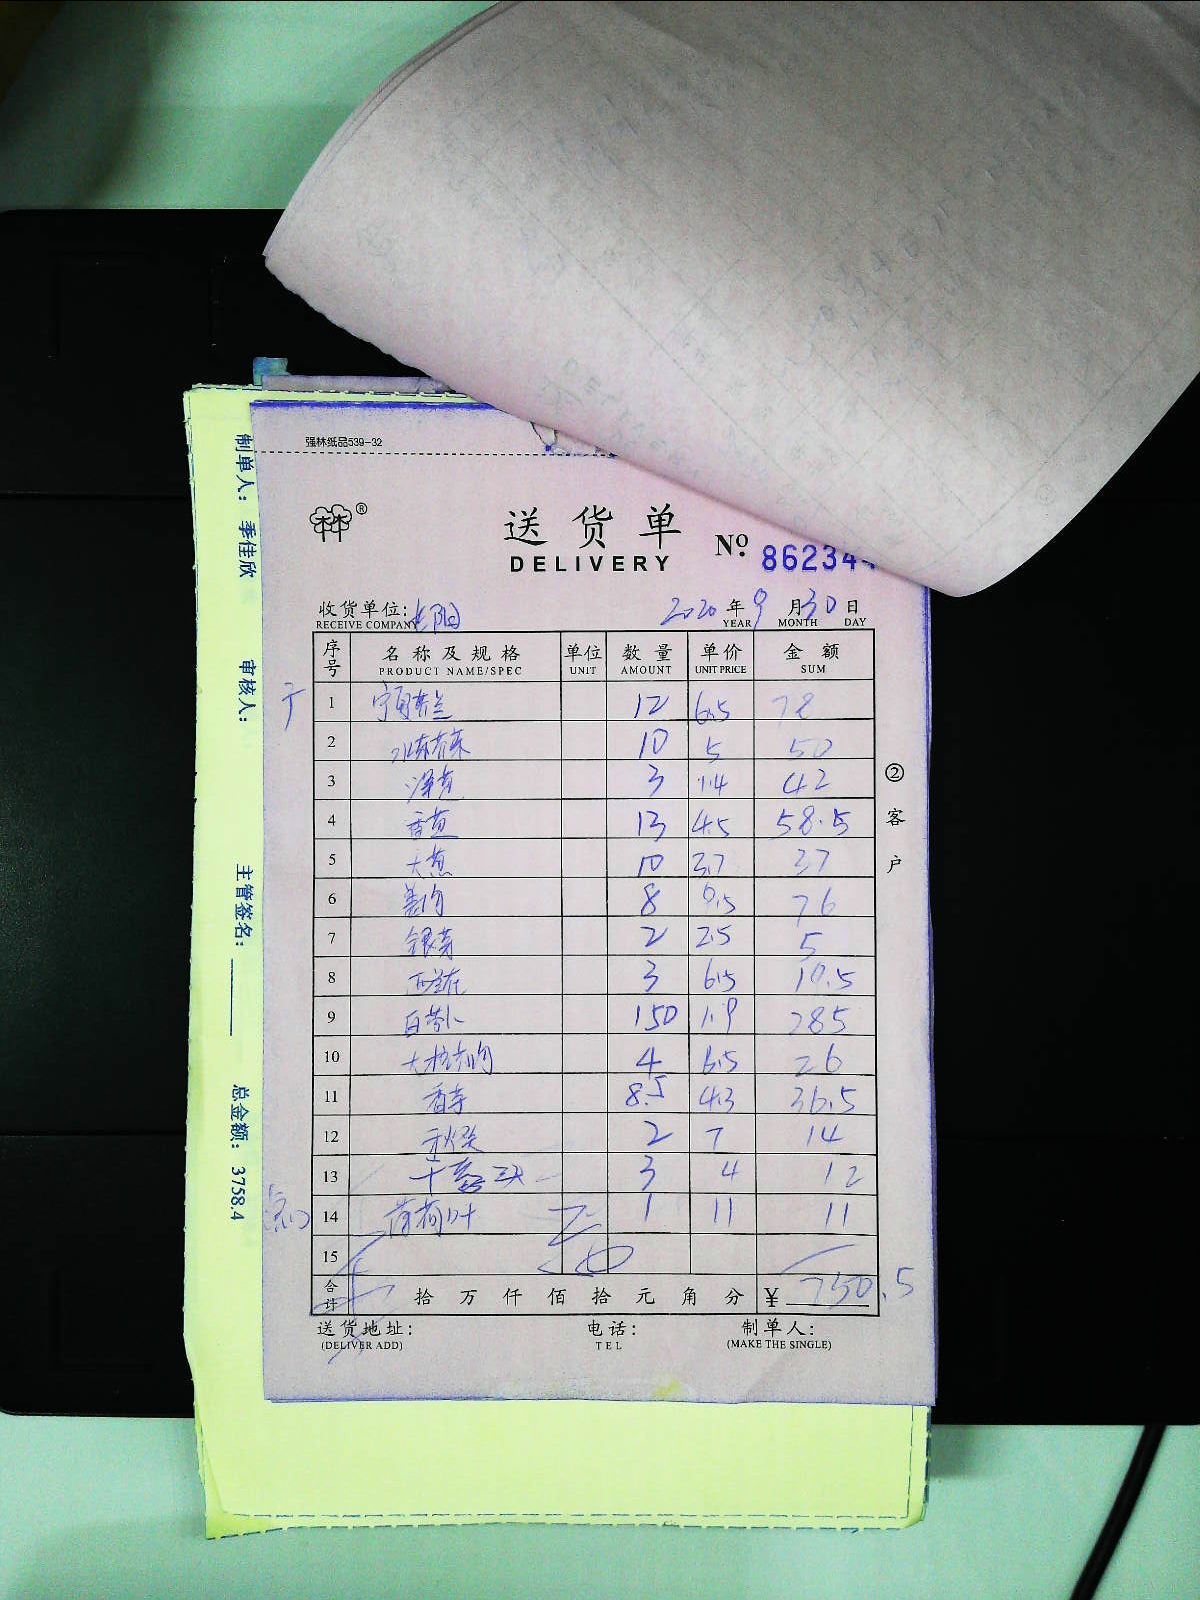 制单人： 季佳欣 审核人： 主管签名： 总金额：3758.4
强林纸品539-32
®
送货单
DELIVERY
No. 86234
收货单位: 2020 年 9 月 30 日
RECEIVE COMPANY YEAR MONTH DAY
序号 名称及规格 单位 数量 单价 金额
PRODUCT NAME/SPEC UNIT AMOUNT UNIT PRICE SUM
1 12 6.5 78
2 10 5 50
3 3 14 42
4 13 4.5 58.5
5 大蕉 10 3.7 37
6 姜肉 8 9.5 76
7 银芽 2 2.5 5
8 3 6.5 19.5
9 白萝卜 150 1.9 285
10 4 6.5 26
11 香芋 8.5 4.3 36.5
12 秋葵 2 7 14
13 3 4 12
14 薄荷叶 1 11 11
15
合计 拾 万 仟 佰 拾 元 角 分 ¥ 750.5
送货地址: 电话: 制单人:
(DELIVER ADD) TEL (MAKE THE SINGLE)
② 客户